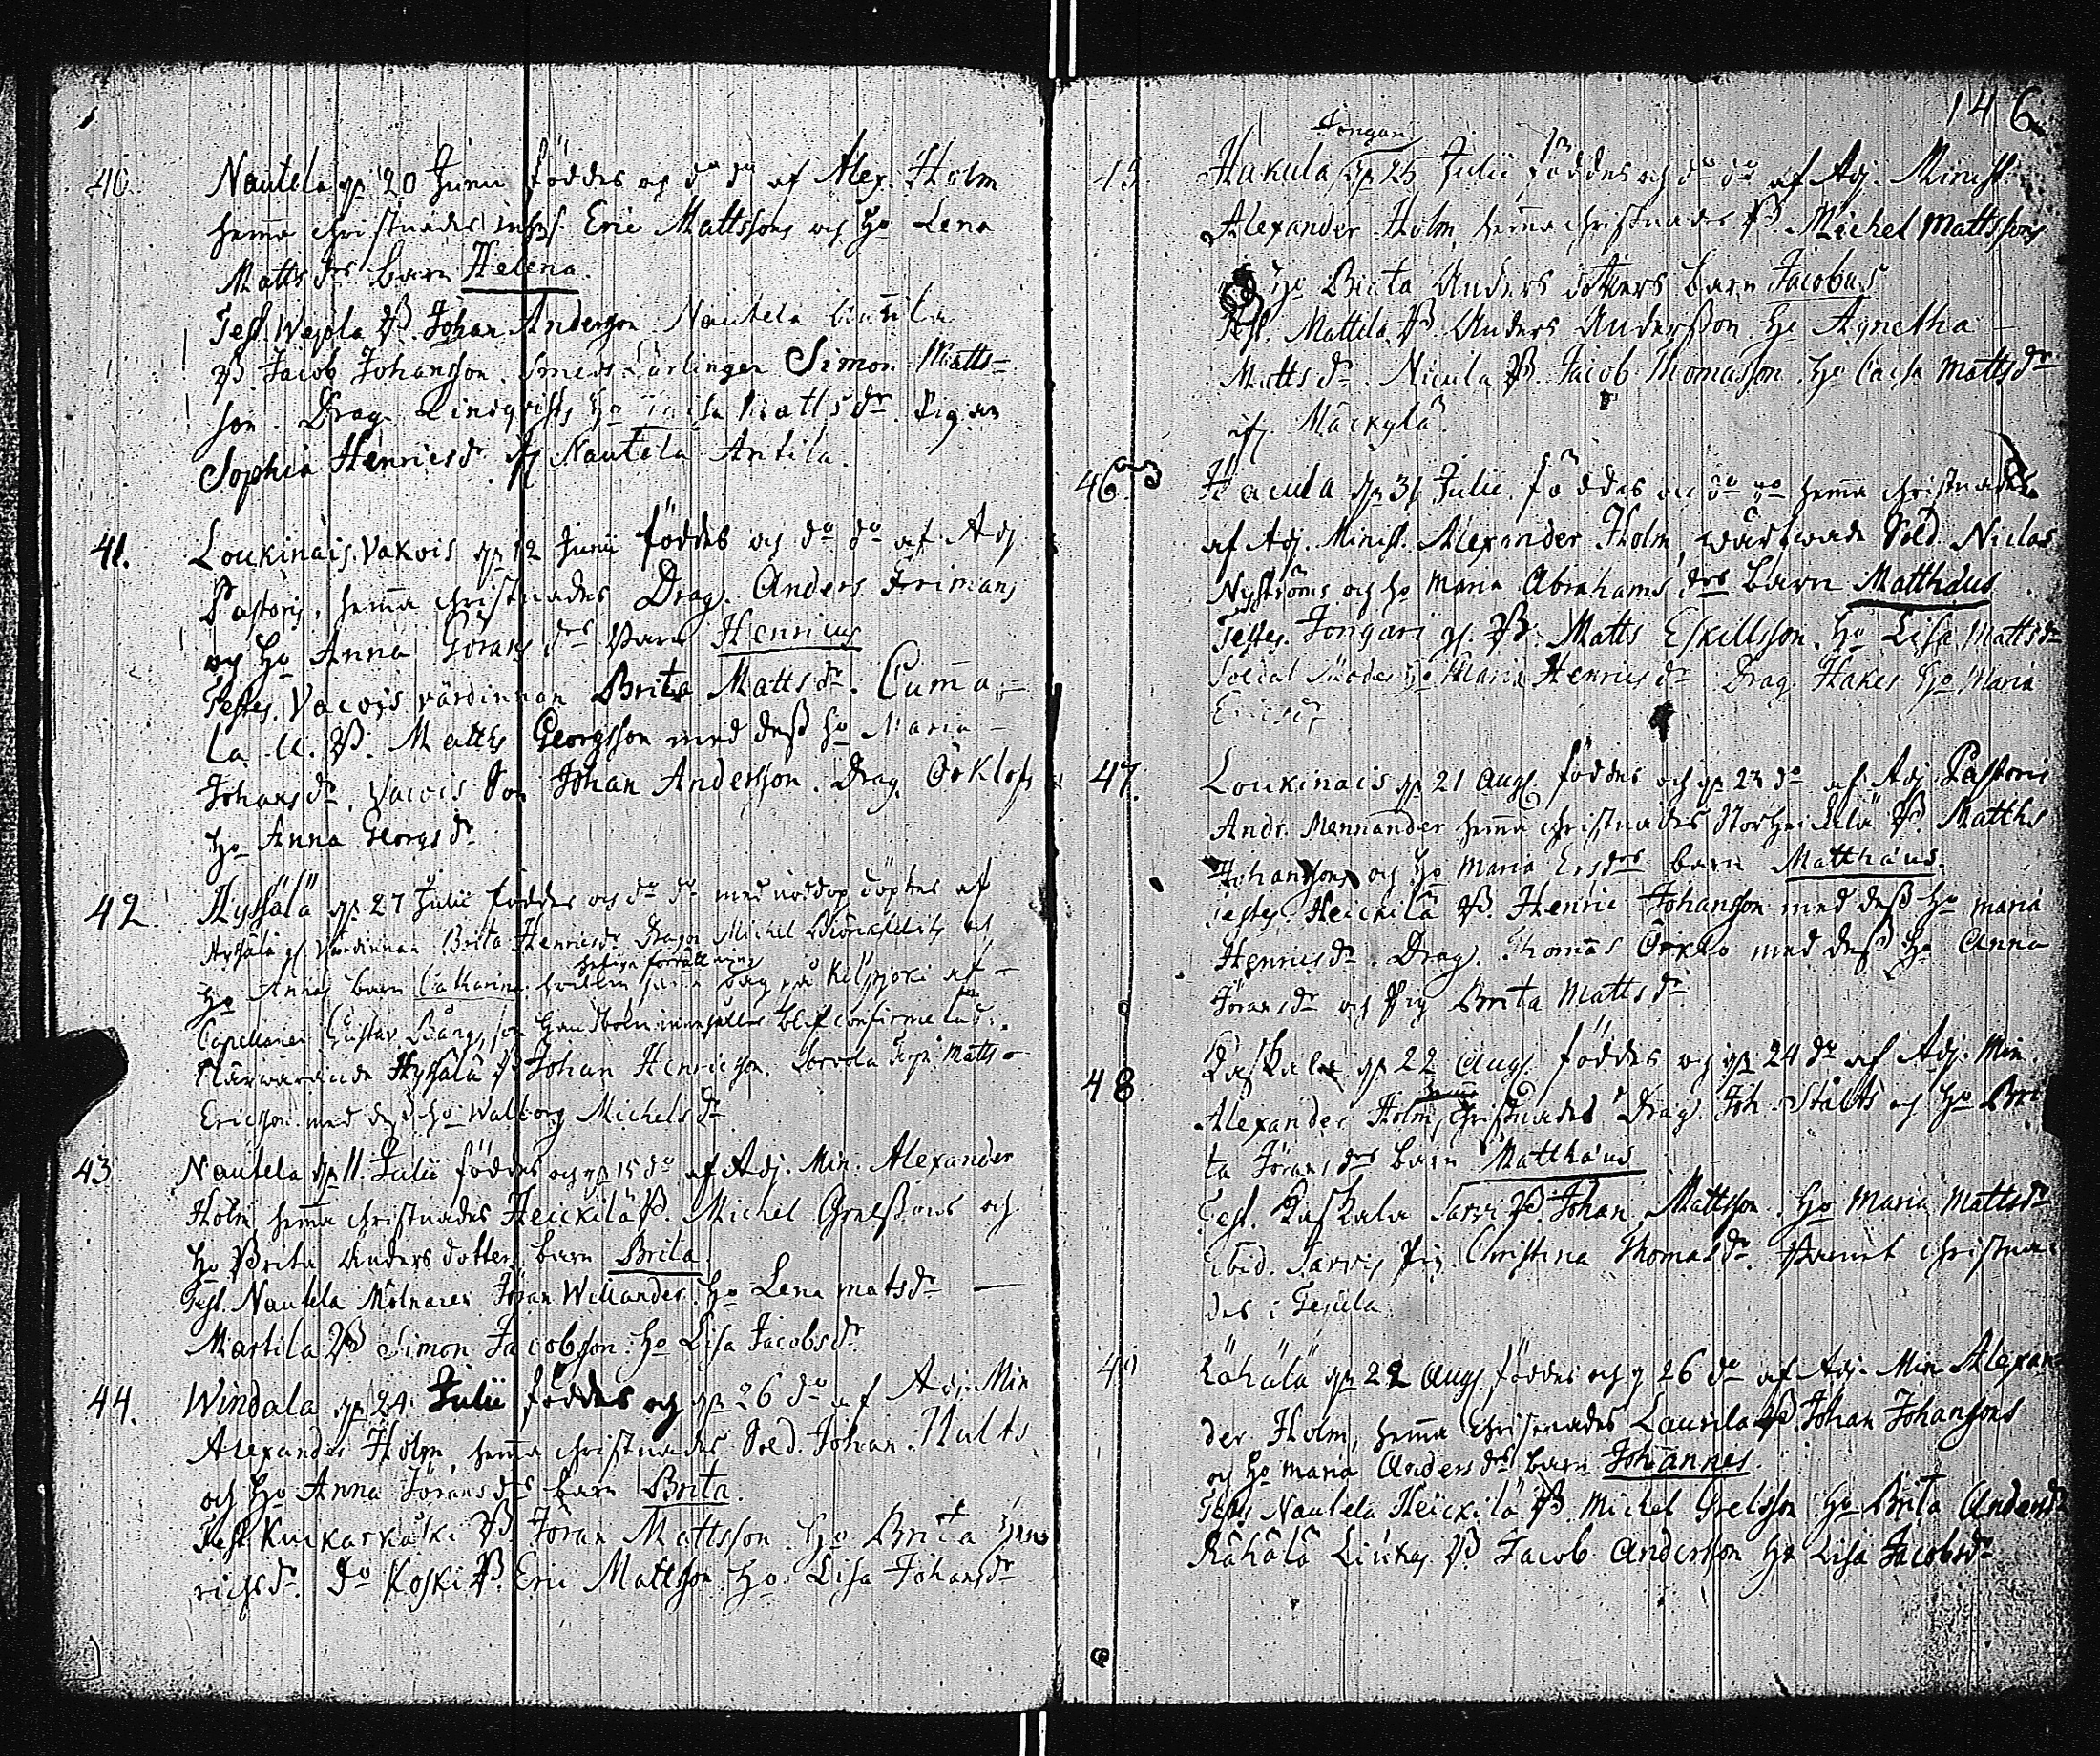 146
40. Nautela d. 20 Junii föddes och do do af Alex. Holm
hema christnades Eric Mattssons och ho Lena
Matts drs barn Helena.
Test. B. Johan Andersson Nautela
B. Jacob Johansson. Smeds Lärlingen Simon Matts-
son. Drag. Lindqvists ho Matts dr. Pigan
Sophia Henricsdr af Nautela Antila.
41. Loukinais Vakois d. 12 Junii föddes och do do af Adj
Pastoris, hema christnades Drag. Anders Frimans
och ho Anna Görans drs barn Henricus
Testes. Vacois värdinnan Brita Matts dr. Cuma-
la B. Matths Georgsson med dess ho Maria
Johans dr. Vacois Son Johan Andersson. Drag. Örklofs
ho Anna Georgs dr
42. Hyssälä d. 27 Julii föddes och do do med nöddop döptes af
Hyssälä värdinnan Brita Henricsdr Dragon Michel och
ho Annas barn Catharina hvilken dag på af
helige förrättning
Capellanen Gustav Bång, som Handboken innehåller blef confirmerad.
Närwarande Hyssälä B Johan Henricsson. Matts
Ericsson med dess ho Walborg Michels dr
43. Nautela d. 11. Julii föddes och d. 15 do af Adj. Min. Alexander
Holm, hema christnades Heickilä B. Michel Grelssons och
ho Brita Anders dotters barn Brita
Test. Nautela Mölnaren Jöran Willander. ho Lena matsdr
Martila B Simon Jacobsson. ho Lisa Jacobsdr.
44. Windala d. 24 Julii föddes och d. 26 do af Adj. Min
Alexander Holm, hema christnades Sold. Johan Hults
och ho Anna Jörans drs barn Brita.
Test Kuckarkoski B Jöran Mattsson. ho Brita Hen-
richsdr. do Koski B. Eric Mattsson ho Lisa Johansdr
Jongari
45 Hakula d. 25 Julii föddes och do do af Adj. Minist.
Alexander Holm, hema christnades B. Michel Mattssons
ho Beata Anders dotters barn Jacobus
Test. Mattila B Anders Andersson ho Agnetha
Matts dr. Nicula B. Jacob Thomasson. ho Caisa Mattsdr
af Mäckylä
46. Hacula d. 31 Julii föddes och do do hema christnades
af Adj. Minist. Alexander Holm, Sold. Niclas
Nyströms och ho Maria Abrahams drs barn Matthäus
Testes. Jongari B. Matts Eskillsson. ho Lisa Mattsdr
ho Maria Henricsdr Drag. Hakes ho Maria
Ericsdr
47. Loukinais d. 21 Aug. föddes och d. 23 do af Adj. Pastoris
Andr. Mennander hema christnades Storheickilä B. Matths
Johanssons och ho Maria Ersdrs barn Matthäus.
Testes. Heickilä B. Henric Johansson med dess ho Maria
Henricsdr. Drag. Thomas Örklo med dess ho Anna
Jöransdr och Pig Brita Matts dr
48. Kaskala d. 22 Aug. föddes och d. 24 do af Adj. Min.
Alexander Holm, hema christnades Drag. Joh. Stålts och ho Bri-
ta Jörans drs barn Matthäus
Test. Kaskala Jarvi B. Johan Mattsson. ho Maria Mattsdr
ibid. Jarvis Pig Christina Thomasdr. barnet christna-
des i
49 Rähälä d. 22 Aug. föddes och d 26 do af Adj. Min Alexan-
der Holm, hema christnades Laurila B. Johan Johanssons
och ho Maria Anders drs barn Johannes.
Test. Nautela Heickilä B. Michel Grelsson ho Brita Andersdr
Rähälä Liukas B. Jacob Andersson ho Lisa Jacobsdr